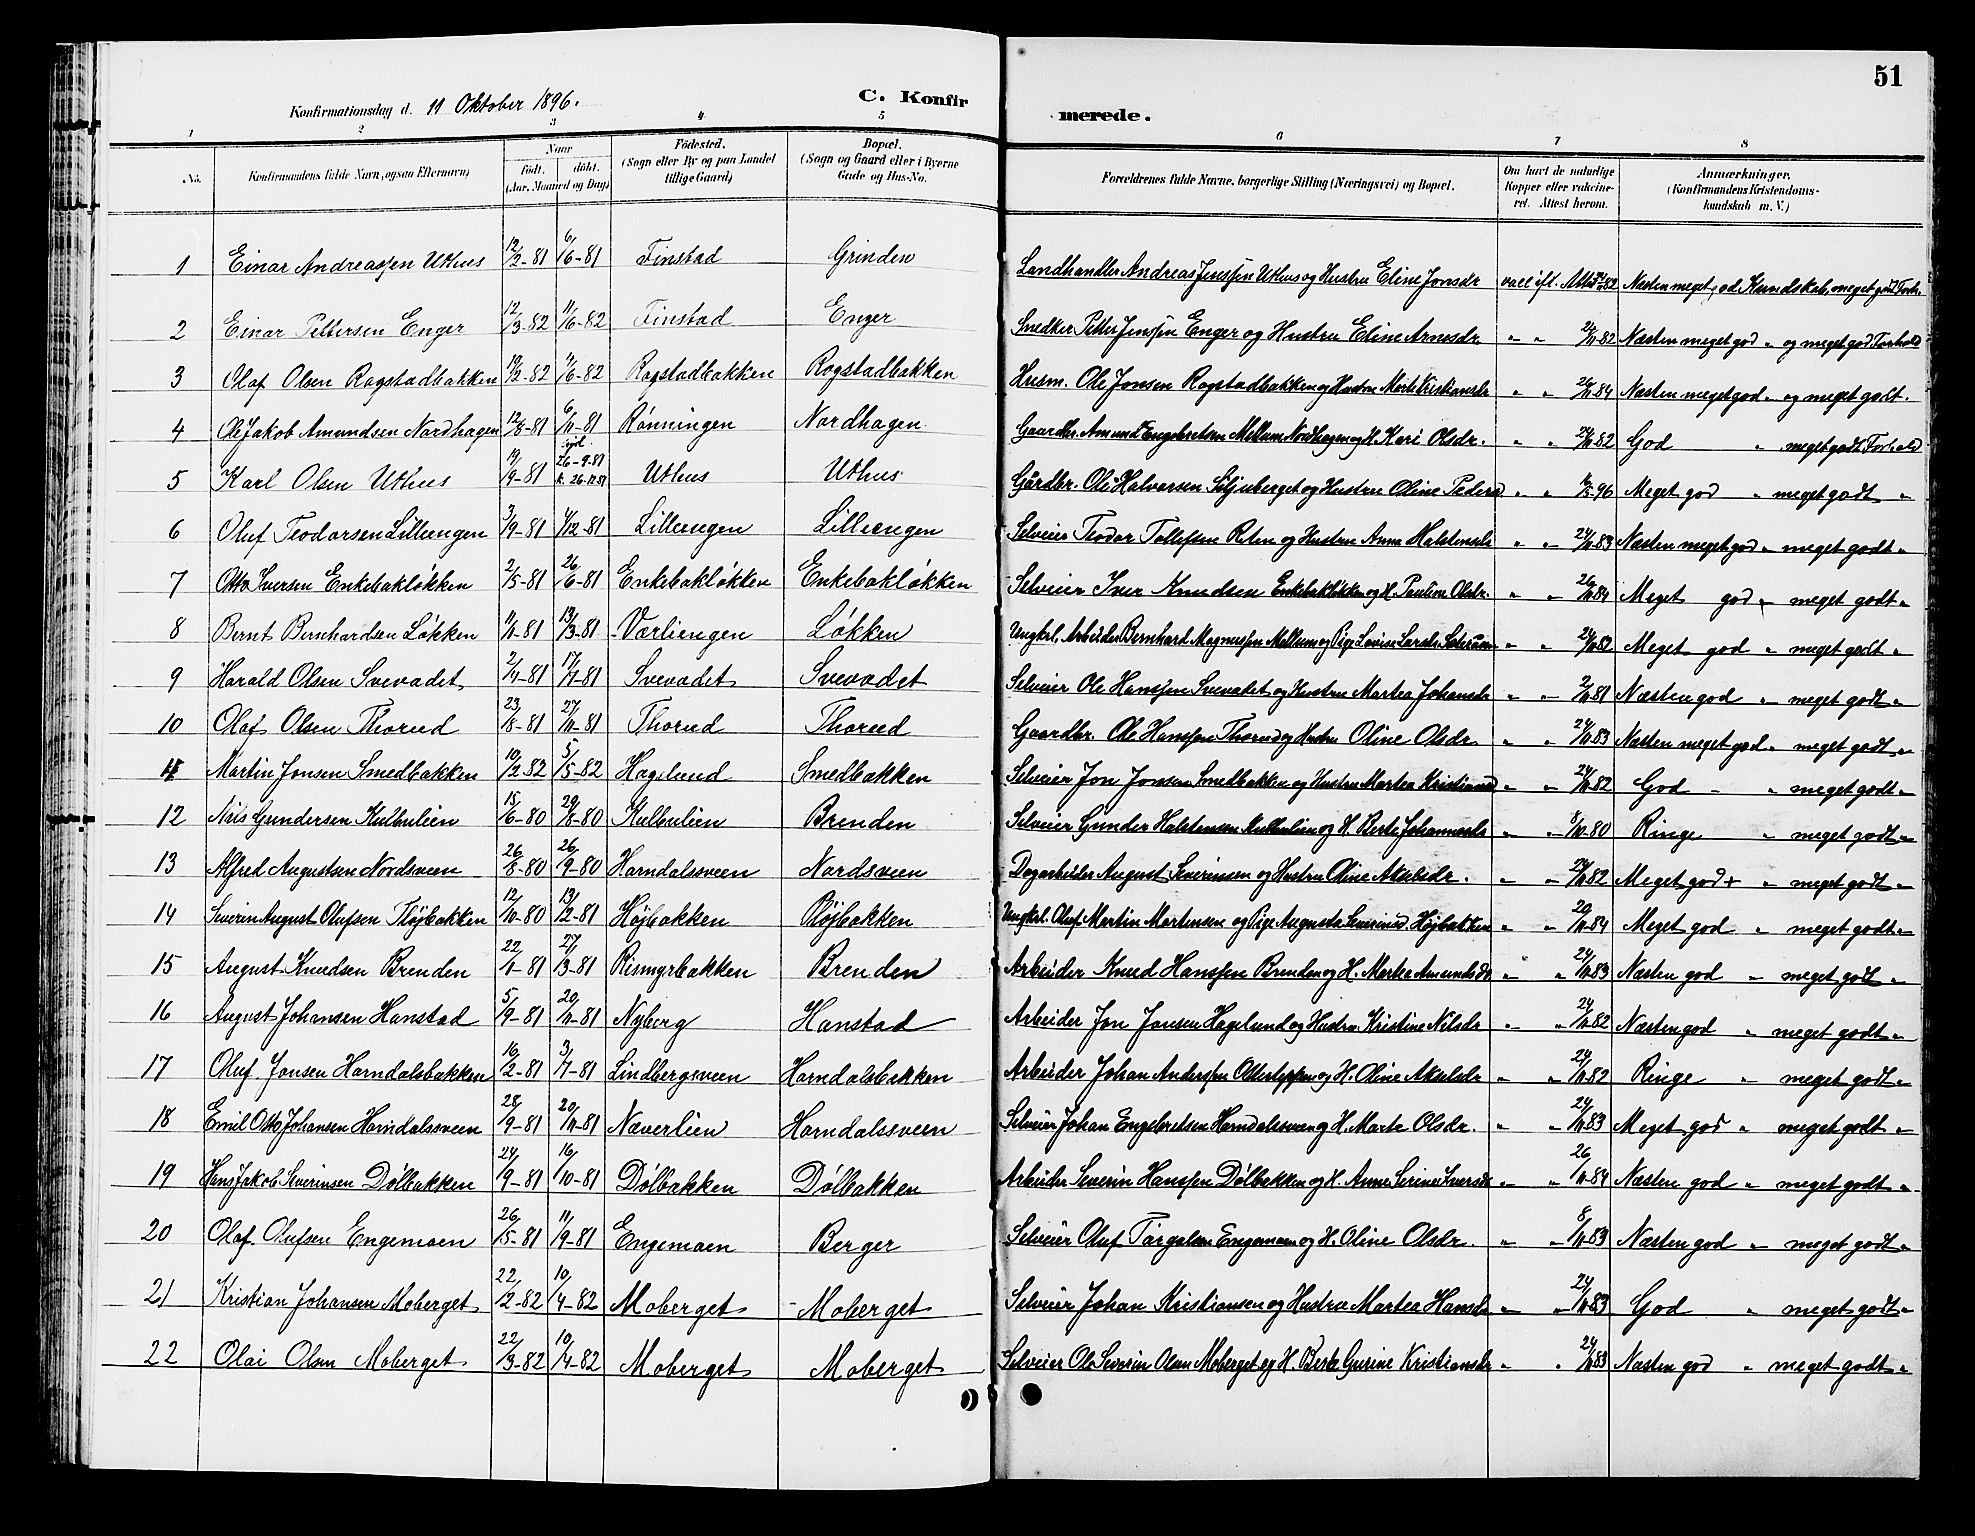 51
Konfirmationsdag d. 11 Oktober 1896.
C. Konfir
merede.
1 2 3 4 5 6 7 8
No. Konfirmandens fulde Navn, ogsaa Efternavn) Naar født. døbt. (Aar, Maaned og Dag) Fødested. (Sogn eller By og paa Landet tillige Gaard) Bopæl. (Sogn og Gaard eller i Byerne Gade og Hus-No. Forældrenes fulde Navne, borgerlige Stilling (Næringsvei) og Bopæl. Om havt de naturlige Kopper eller vakcineret. Attest herom. Anmærkninger, (Konfirmandens Kristendomskundskab m. V.)
1 Einar Andreassen Uthus 12/2-81 6/6-81 Finstad Grinden Landhandler Andreas Jenssen Uthus og Hustru Eline Jonsdr vacc ift. Næsten meget god Kundskab, meget god Forh.
2 Einar Pettersen Enger 12/3-82 11/6-82 Finstad Enger Snedker Petter Jenssen Enger og Hustru Eline Arnesdr " " 24/11-82 Næsten meget god " og meget god Forhold
3 Olaf Olsen Rogstadbakken 19/2-82 11/6-82 Rogstadbakken Rogstadbakken Husm. Ole Jonsen Rogstadbakken og Hustru Marte Kristiansdr " " 26/11-84 Næsten meget god " og meget godt.
4 Ole Jakob Amundsen Nordhagen 12/8-81 6/11-81 Rønningen Nordhagen Gaardbr. Amund Engebretsen Mellum Nordhagen og H. Kari Olsdr. " " 24/11-82 God " meget godt Forhold
5 Karl Olsen Uthus 19/9-81 hjd. 26-9-81 k. 26-12-81 Uthus Uthus Gårdbr. Ole Halvorsen Siljuberget og Hustru Oline Pedersd " " 5-96 Meget god " meget godt "
6 Oluf Teodorsen Lilleengen 3/9-81 4/12-81 Lilleengen Lilleengen Selveier Teodor Tollefsen Reten og Hustru Anna Halstensdr " " 24/11-83 Næsten meget god " meget godt "
7 Otto Iversen Enkebakløkken 2/5-81 26/6-81 Enkebakløkken Enkebakløkken Selveier Iver Knudsen Enkebakløkken og H. Pauline Olsdr. " " 26/11-84 Meget god " meget godt "
8 Bernt Bernhardsen Løkken 1/1-81 13/3-81 Værliengen Løkken Ungkrl. Arbeider Bernhard Magnussen Mellum og Pige Lovise Larsdr " " 24/11-82 Meget god " meget godt "
9 Harald Olsen Svevadet 2/4-81 17/7-81 Svevadet Svevadet Selveier Ole Hanssen Svevadet og Hustru Martea Johansdr " " 2/11-81 Næsten god " meget godt "
10 Olaf Olsen Thorud 23/8-81 27/11-81 Thorud Thorud Gaardbr. Ole Hanssen Thorud og Hustru Oline Olsdr " " 24/11-83 Næsten meget god " meget godt "
11 Martin Jonsen Smedbakken 10/2-82 5/5-82 Hagelund Smedbakken Selveier Jon Jonsen Smedbakken og Hustru Martea Kristiansd " " 24/11-82 God " " meget godt "
12 Nils Gundersen Kulbulien 15/6-80 29/8-80 Kulbulien Brenden Selveier Gunder Halstensen Kulbulien og H. Berte Johannesdr " " 8/11-80 Ringe " meget godt "
13 Alfred Augustsen Nordsveen 26/8-80 26/9-80 Harndalssveen Nordsveen Dagarbeider August Severinsen og Hustru Oline Akseldr. " " 24/11-82 Meget god+ " meget godt "
14 Severin August Olufsen Fløjbakken 12/10-80 13/2-81 Højbakken Fløjbakken Ungkrl. Oluf Martin Martensen og Pige Augusta Severinsd. Højbakken " " 20/11-84 Meget god " meget godt "
15 August Knudsen Brenden 22/1-81 27/3-81 Rismyrbakken Brenden Arbeider Knud Hanssen Brenden og H. Martea Amundsdr. " " 24/11-83 Næsten god " meget godt "
16 August Johansen Hanstad 5/9-81 20/11-81 Nyborg Hanstad Arbeider Jon Jonsen Hagelund og Hustru Kristine Nilsdr " " 24/11-82 Næsten god " meget godt "
17 Oluf Jonsen Harndalsbakken 16/2-81 3/7-81 Lindbergsveen Harndalsbakken Arbeider Johan Anderssen Ottesteppen og H. Oline Akselsdr " " 24/11-82 Ringe " meget godt "
18 Emil Otto Johansen Harndalssveen 28/9-81 20/11-81 Næverlien Harndalssveen Selveier Johan Engebretsen Harndalssveen og H. Marte Olsdr. " " 24/11-83 Meget god " meget godt "
19 Hans Jakob Severinsen Dølbakken 24/9-81 16/10-81 Dølbakken Dølbakken Arbeider Severin Hanssen Dølbakken og H. Anne Serine Iversdr " " 26/11-84 Næsten god " meget godt "
20 Olaf Olufsen Engemoen 26/5-81 11/9-81 Engemoen Berger Selveier Oluf Torgalsen Engemoen og H. Oline Olsdr. " " 8/11-83 Næsten god " meget godt "
21 Kristian Johansen Moberget 22/12-82 10/4-82 Moberget Moberget Selveier Johan Kristiansen og Hustru Martea Hansdr " " 24/11-83 God " meget godt "
22 Olai Olsen Moberget 22/3-82 10/4-82 Moberget Moberget Selveier Ole Severin Olsen Moberget og H. Berte Gurine Kristiansdr " " 24/11-83 Næsten god " meget godt "